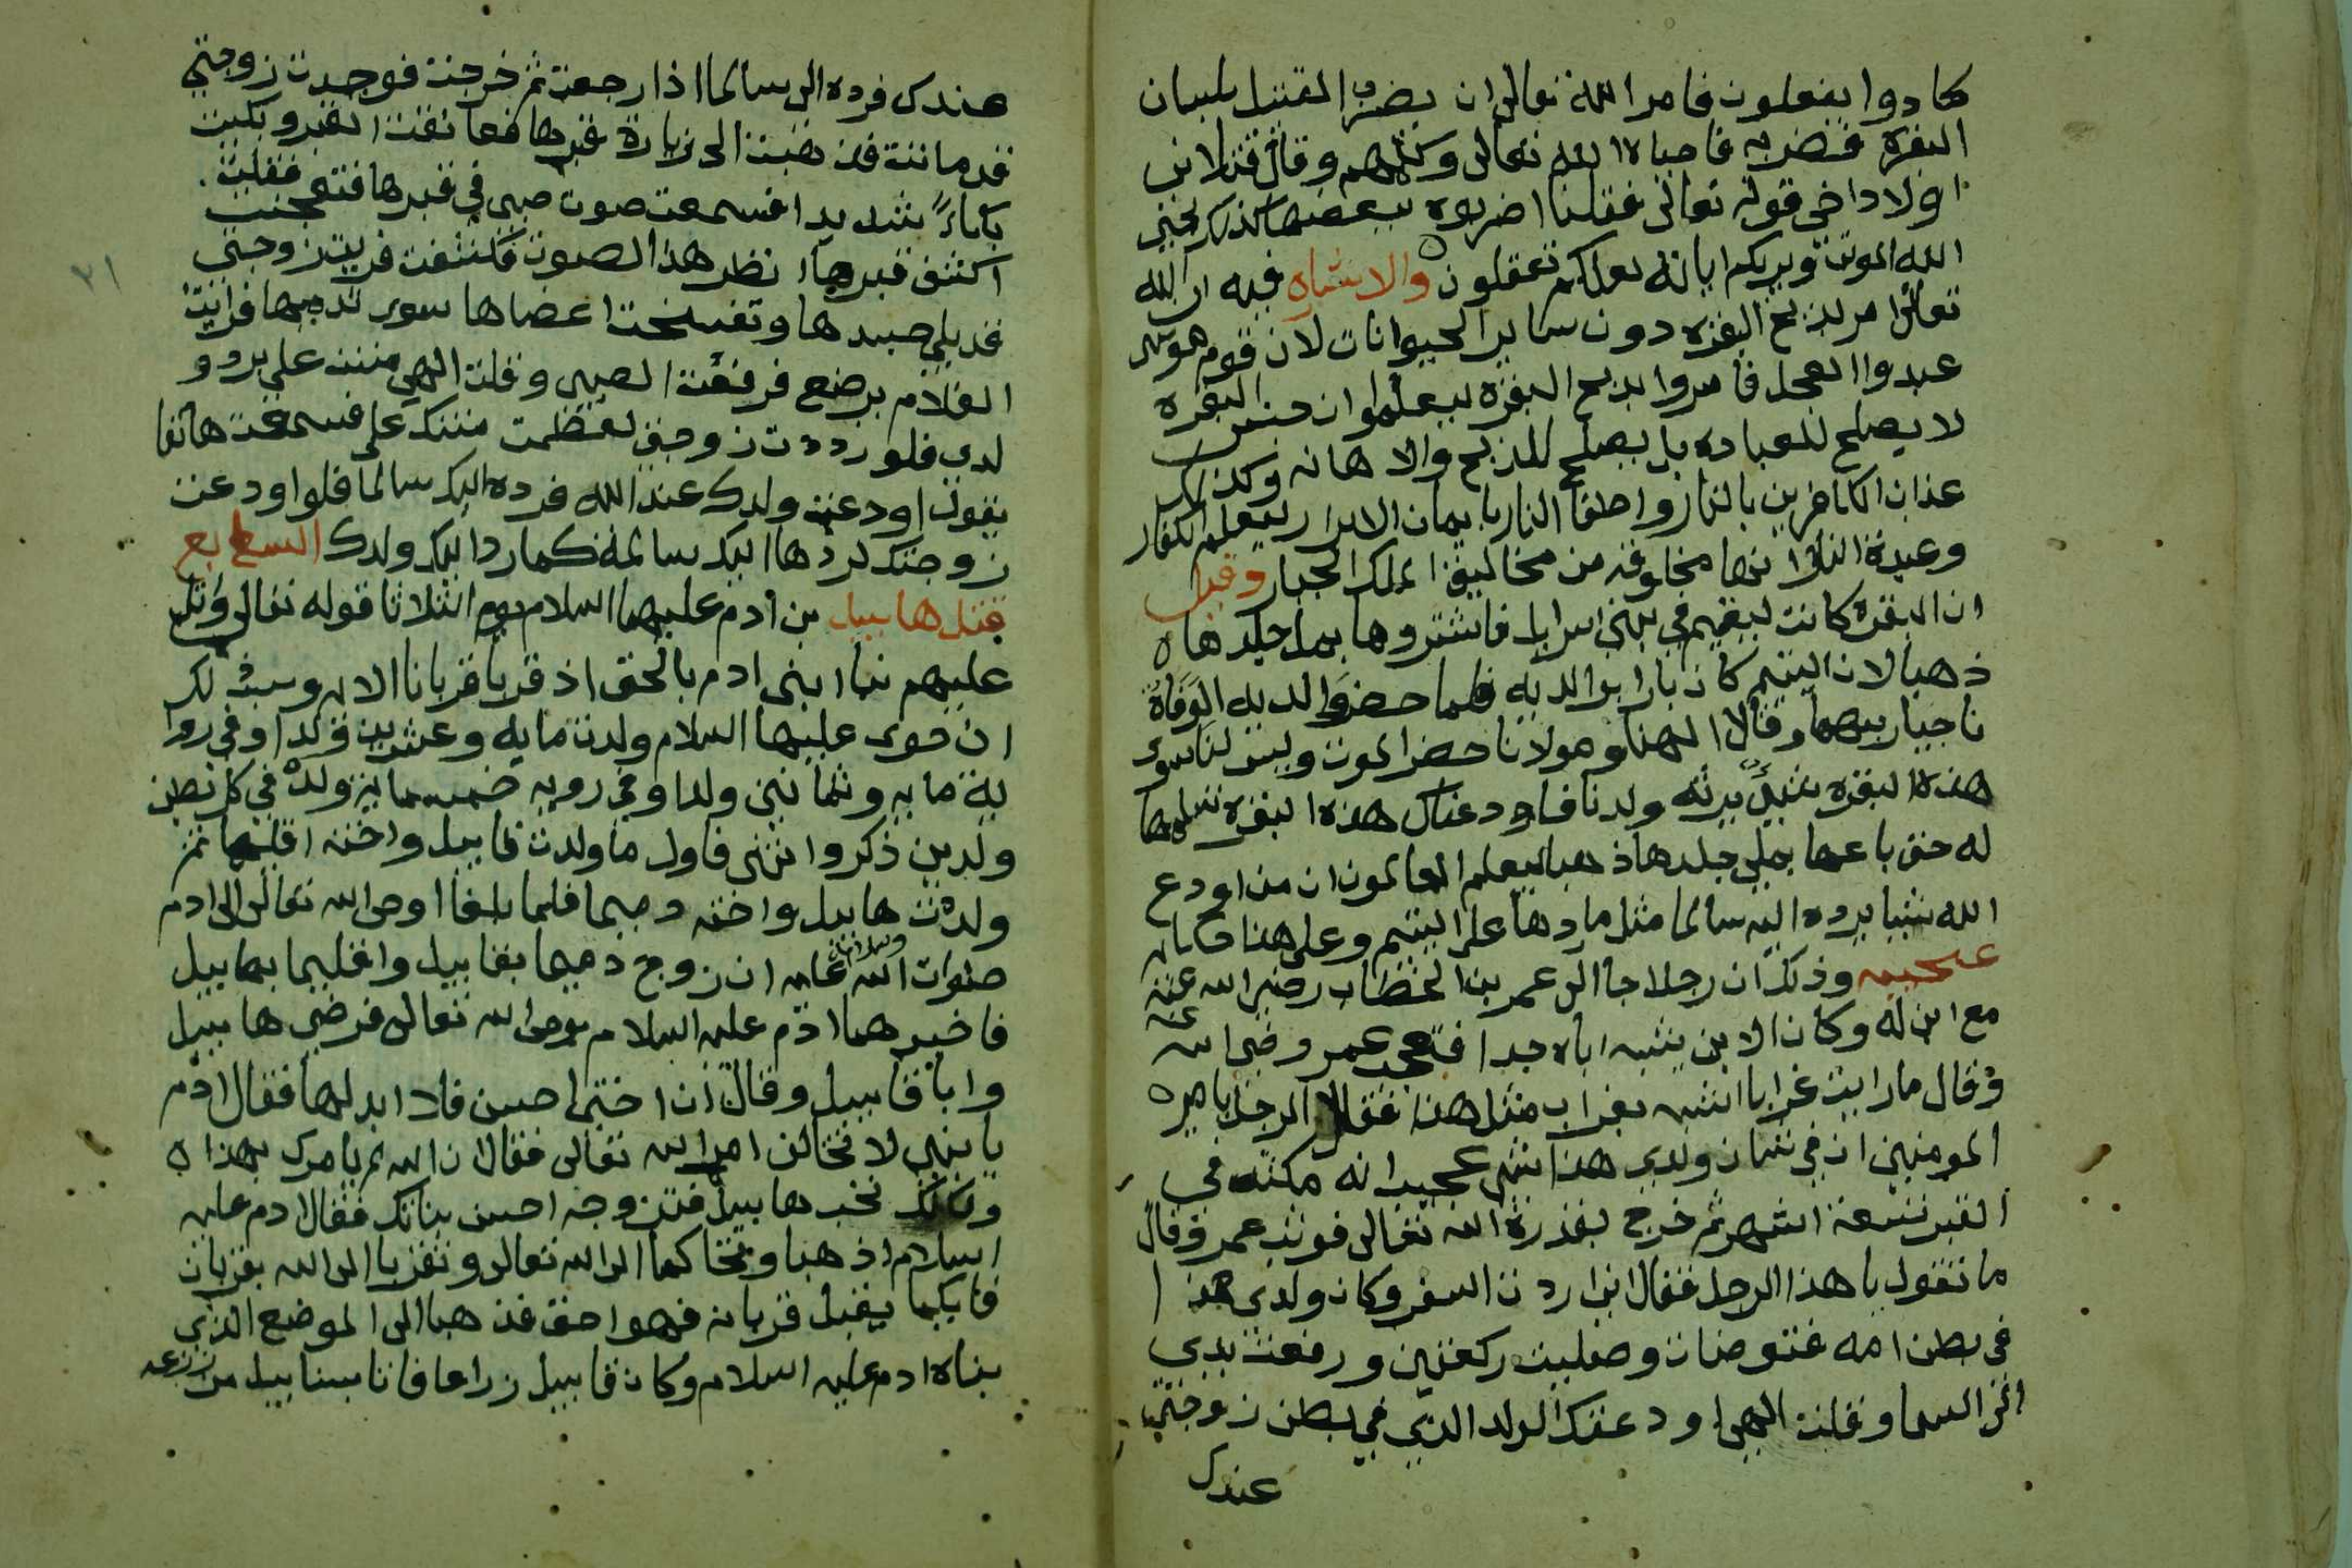 كادوا يفعلون فامر الله تعالى ان يضربوا القتيل بلسان
البقرة فضربه فاحياه الله تعالى وكلمهم وقال قتلاني
اولاد اخي قوله تعالى فقلنا اضربوه ببعضها كذلك يحيي
الله الموتى ويريكم اياته لعلكم تعقلون والاشاره فيه ان الله
تعالى امر بذبح البقره دون ساير الحيوانات لان قوم موسى
عبدوا العجل فامروا بذبح البقرة ليعلموا ان جنس البقره
لا يصلح للعباده بل يصلح للذبح والاهانه وكذلك
عذاب الكافرين بالنار واطفا النار بايمان الابرار ليعلم الكفار
وعبدة النار انها مخلوقه من مخاليق الملك الجبار وقيل
ان البقرة كانت ليتيم في بني اسرايل فاشتروها بملء جلدها
ذهبا لان اليتيم كان بارا بوالديه فلما حضر والديه الوفاة
ناجيا ربهما وقالا الهنا ومولانا حضر الموت وليس لنا سوى
هذه البقره شيئ يرثه ولدنا فاودعناك هذه البقره تسلمها
له حتى باعها بملي جلدها ذهبا ليعلم العالمون ان من اودع
الله شيا يرده اليه سالما مثل ما ردها على اليتيم وعلى هذا حكايه
عجيبه وذلك ان رجلا جا الى عمر بن الخطاب رضي الله عنه
مع ابن له وكان الابن يشبه اباه جدا فتعجب عمر رضي الله عنه
وقال ما رايت غرابا اشبه بغراب مثل هذا فقال الرجل يا امير
المومنين ان في شان ولدي هذا شي عجيب انه مكث في
القبر تسعة اشهر ثم خرج بقدرة الله تعالى فوثب عمر وقال
ما تقول يا هذا الرجل فقال اني اردت السفر وكان ولدي هذا
في بطن امه فتوضات وصليت ركعتين ورفعت يدي
الى السما وقلت الهي اودعتك الولد الذي في بطن زوجتي
عندك
عندك فرده الي سالما اذا رجعت ثم خرجت فوجدت زوجتي
قد ماتت فذهبت الى زيارة قبرها فعانقت القبر وبكيت
بكاءً شديدا فسمعت صوت صبي في قبرها فتعجبت فقلت
اكشف قبرها انظر هذا الصوت فكشفت فرايت زوجتي
قد بلي جسدها وتفسخت اعضاها سوى ثدييها فرايت
الغلام يرضع فرفعت الصبي وقلت الهي مننت علي برد و
لدي فلو رددت زوجتي لعظمت منتك علي فسمعت هاتفا
يقول اودعت ولدك عند الله فرده اليك سالما فلو اودعت
زوجتك لردها اليك سالمة كما رد اليك ولدك السابع
قتل هابيل بن ادم عليهما السلام يوم الثلاثا قوله تعالى واتل
عليهم نبا ابني ادم بالحق اذ قربا قربانا الايه وسبب ذلك
ان حوى عليها السلام ولدت مايه وعشرين ولدا وفي روا
ية مايه وثمانين ولدا وفي رويه خمسمايه ولد في كل بطن
ولدين ذكر وانثى فاول ما ولدت قابيل واخته اقليما ثم
ولدت هابيل واخته دميما فلما بلغا اوحى الله تعالى الى ادم
صلوات الله وسلامه عليه ان زوج دميما بقابيل واقليما بهابيل
فاخبرهما ادم عليه السلام بوحي الله تعالى فرضي هابيل
وابا قابيل وقال ان اختي احسن فلا ابدلها فقال ادم
يا بني لا تخالف امر الله تعالى فقال ان الله لم يامرك بهذا
ولكنك تحب هابيل فتزوجه احسن بناتك فقال ادم عليه
السلام اذهبا وتحاكما الى الله تعالى وتقربا الى الله بقربان
فايكما يقبل قربانه فهو احق فذهبا الى الموضع الذي
بناه ادم عليه السلام وكان قابيل زراعا فاتا بسنابيل من زرعه
السابع
٢١